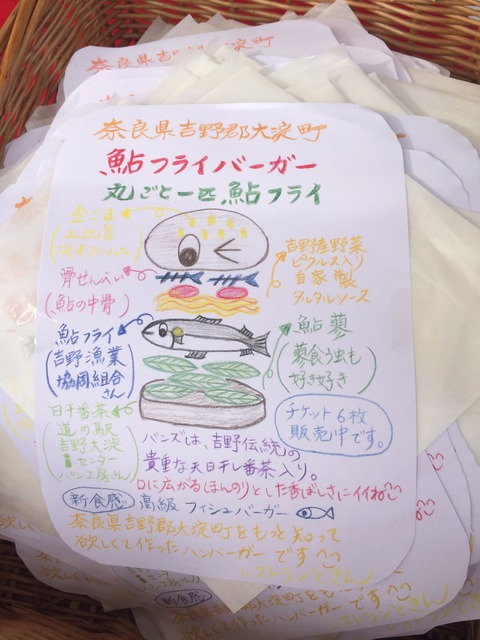 奈良県吉野郡大淀町
鮎フライバーガー
丸ごと一匹鮎フライ
金ごま
吉野産野菜
ピクルス入り
自家製
タルタルソース
骨せんべい
(鮎の中骨)
鮎フライ
(吉野漁業
協同組合
さん)
鮎蓼
(蓼食う虫も
好き好き)
日干番茶
(道の駅
吉野大淀
iセンター
パン工房さん)
チケット6枚
販売中です。
バンズは、吉野伝統の
貴重な天日干し番茶入り。
口に広がるほんのりとした香ばしさにイイね
新食感 高級フィシュバーガー
奈良県吉野郡大淀町をもっと知って
欲しくて作ったハンバーガーです